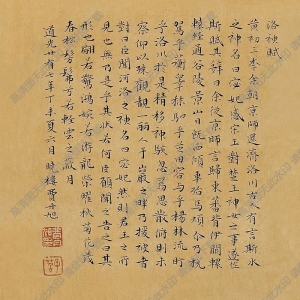 洛神賦
黃初三年余朝京師還濟洛川古人有言斯水
之神名曰宓妃感宋玉對楚王神女之事遂作
斯賦其辭曰余從京師言歸東藩背伊闕越
轘轅經通谷陵景山日既西傾車殆馬煩尔乃稅
駕乎蘅皋秣駟乎芝田容與乎楊林流眄
乎洛川於是精移神駭忽焉思散俯則未
察仰以殊觀覩一麗人于巖之畔乃援彼者
對曰臣聞河洛之神名曰宓妃然則君王之所
見也無乃是乎其狀若何臣願聞之告之曰其
形也翩若驚鴻婉若游龍榮曜秋菊花茂
春松髣髴兮若輕雲之蔽月
道光廿有七年丁未夏六月 賈士旭